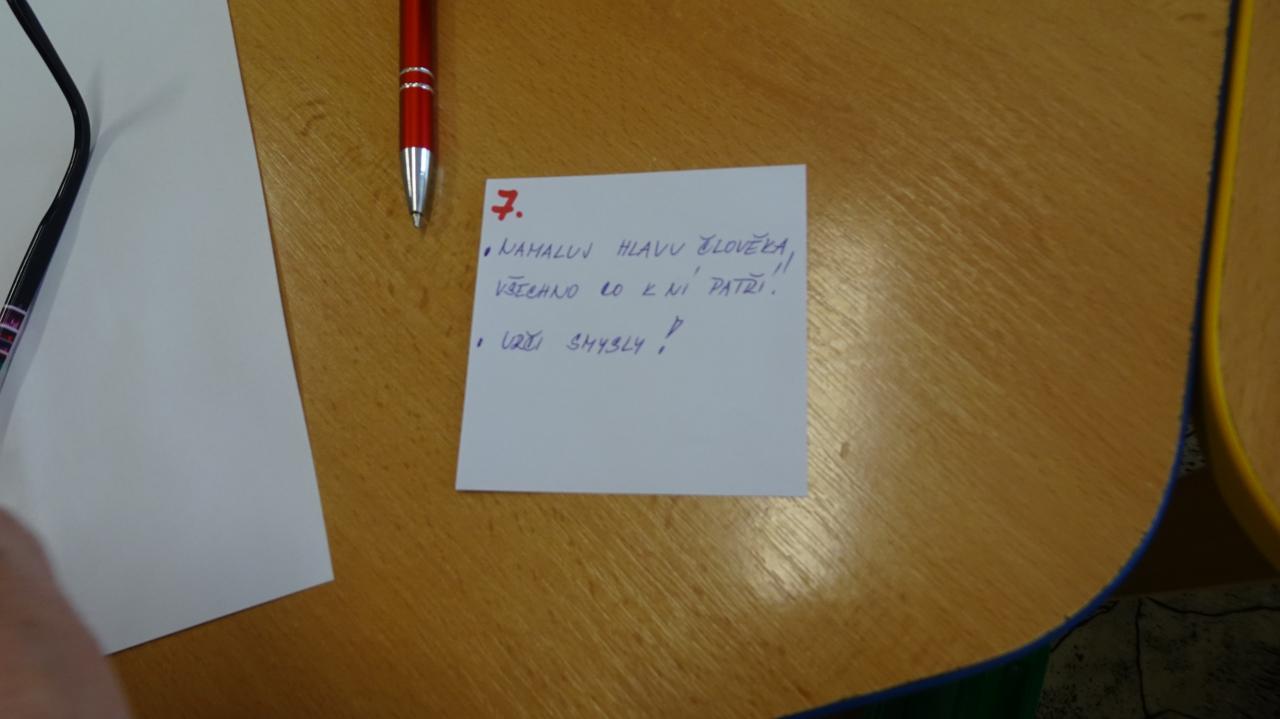 7.
• NAMALUJ HLAVU ČLOVĚKA,
VŠECHNO CO K NÍ PATŘÍ!!
• URČI SMYSLY!